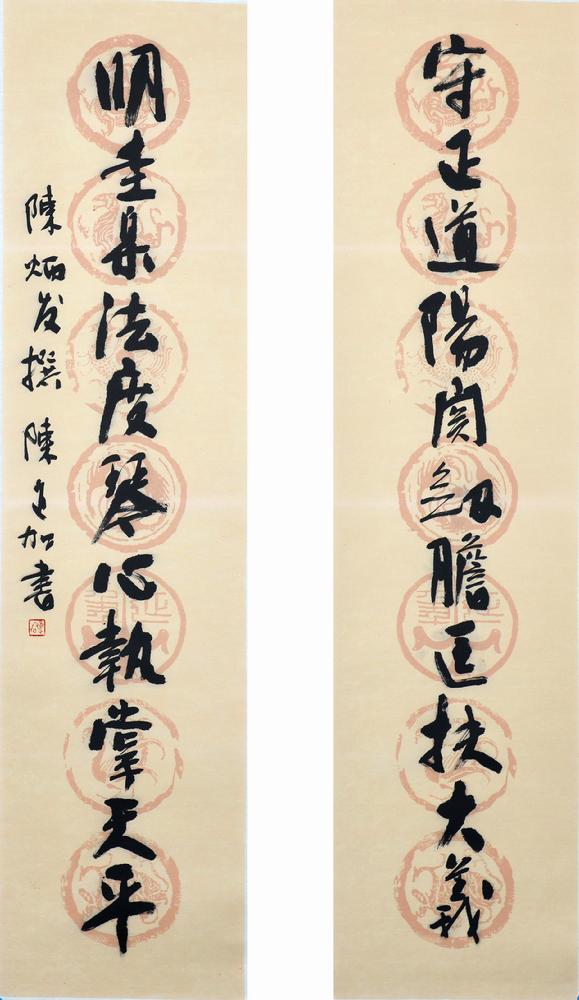 守正道陽関劍膽匡扶大義
明圭臬法度琴心執掌天平
陳炳发撰 陳加書